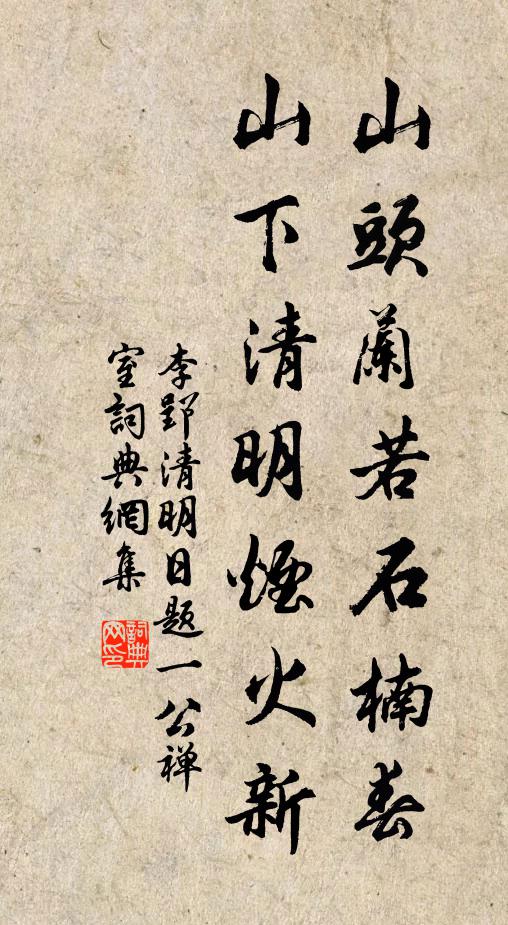 山頭蘭若石楠春
山下清明煙火新
李郢清明日題一公禅
室詞典網集
詞典
网印